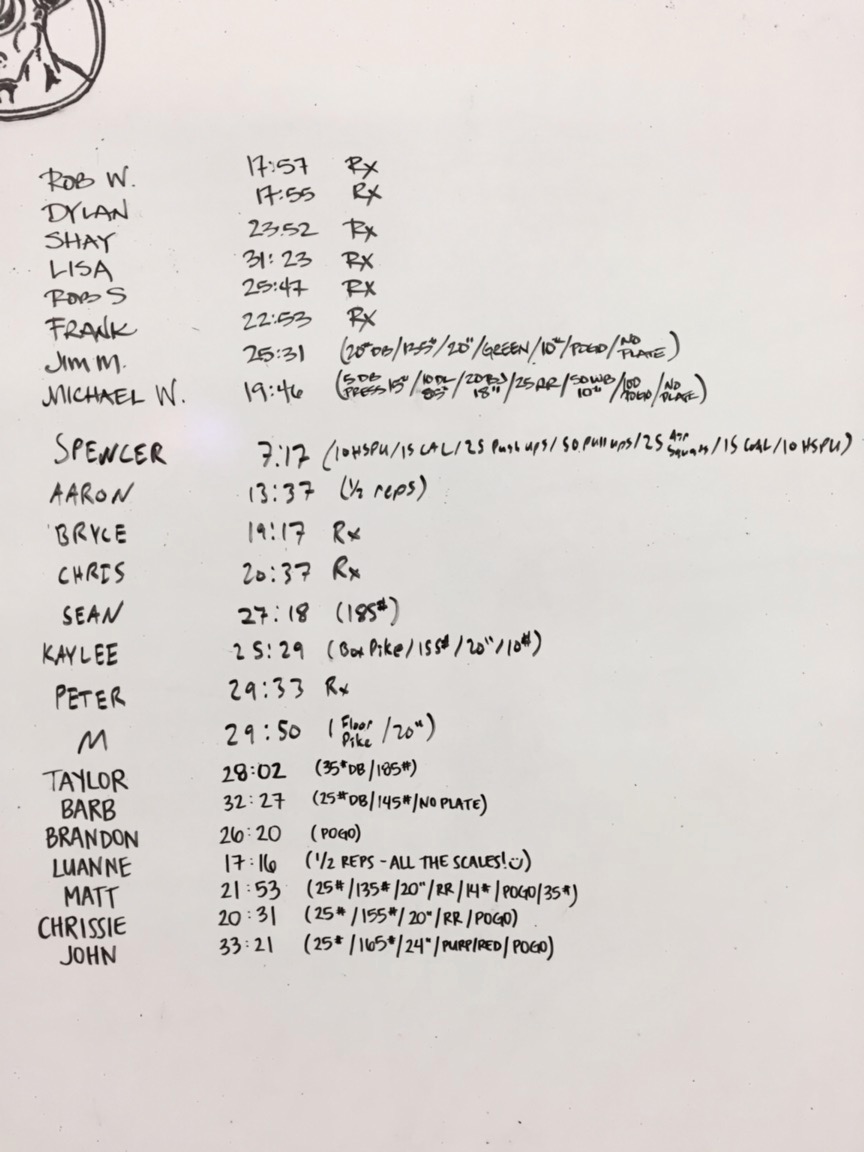 ROB W. 17:57 Rx
DYLAN 17:55 Rx
SHAY 23:52 Rx
LISA 31:23 Rx
ROB S 25:47 Rx
FRANK 22:53 Rx
JIM M. 25:31 (20# DB/135#/20"/GREEN/10#/POGO/NO PLATE)
MICHAEL W. 19:46 (5 DB PRESS 15#/10 DL 85#/20 BJ 18"/25 RR/50 WB 10#/100 POGO/NO PLATE)
SPENCER 7:17 (10 HSPU/15 CAL/25 Push ups/50 Pull ups/25 Air Squats/15 CAL/10 HSPU)
AARON 13:37 (1/2 reps)
BRYCE 19:17 Rx
CHRIS 20:37 Rx
SEAN 27:18 (185#)
KAYLEE 25:29 (Box Pike/155#/20"/10#)
PETER 29:33 Rx
M 29:50 (Floor Pike/20")
TAYLOR 28:02 (35# DB/185#)
BARB 32:27 (25# DB/145#/NO PLATE)
BRANDON 26:20 (POGO)
LUANNE 17:16 (1/2 REPS - ALL THE SCALES!)
MATT 21:53 (25#/135#/20"/RR/14#/POGO/35#)
CHRISSIE 20:31 (25#/155#/20"/RR/POGO)
JOHN 33:21 (25#/165#/24"/PURP/RED/POGO)